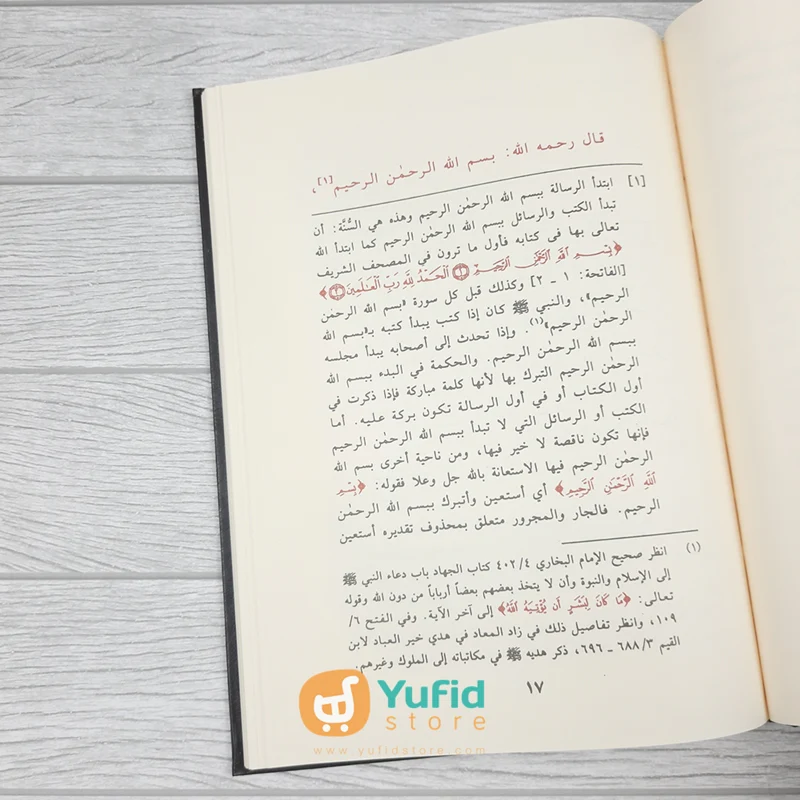 قال رحمه الله: بسم الله الرحمٰن الرحيم[١]،
[١] ابتدأ الرسالة ببسم الله الرحمٰن الرحيم وهذه هي السُّنَّة: أن
تبدأ الكتب والرسائل ببسم الله الرحمٰن الرحيم كما ابتدأ الله
تعالى بها في كتابه فأول ما ترون في المصحف الشريف
﴿بِسْمِ اللَّهِ الرَّحْمَٰنِ الرَّحِيمِ ١ الْحَمْدُ لِلَّهِ رَبِّ الْعَالَمِينَ ٢﴾
[الفاتحة: ١ - ٢] وكذلك قبل كل سورة «بسم الله الرحمٰن
الرحيم»، والنبي ﷺ كان إذا كتب يبدأ كتبه بـ«بسم الله
الرحمٰن الرحيم»(١). وإذا تحدث إلى أصحابه يبدأ مجلسه
ببسم الله الرحمٰن الرحيم. والحكمة في البدء ببسم الله
الرحمٰن الرحيم التبرك بها لأنها كلمة مباركة فإذا ذكرت في
أول الكتاب أو في أول الرسالة تكون بركة عليه. أما
الكتب أو الرسائل التي لا تبدأ ببسم الله الرحمٰن الرحيم
فإنها تكون ناقصة لا خير فيها، ومن ناحية أخرى بسم الله
الرحمٰن الرحيم فيها الاستعانة بالله جل وعلا فقوله: ﴿بِسْمِ
اللَّهِ الرَّحْمَٰنِ الرَّحِيمِ﴾ أي أستعين وأتبرك ببسم الله الرحمٰن
الرحيم. فالجار والمجرور متعلق بمحذوف تقديره أستعين
(١) انظر صحيح الإمام البخاري ٤٠٢/٤ كتاب الجهاد باب دعاء النبي ﷺ
إلى الإسلام والنبوة وأن لا يتخذ بعضهم بعضاً أرباباً من دون الله وقوله
تعالى: ﴿مَا كَانَ لِبَشَرٍ أَن يُؤْتِيَهُ اللَّهُ﴾ إلى آخر الآية. وفي الفتح ٦/
١٠٩، وانظر تفاصيل ذلك في زاد المعاد في هدي خير العباد لابن
القيم ٦٨٨/٣ - ٦٩٦، ذكر هديه ﷺ في مكاتباته إلى الملوك وغيرهم.
١٧
Yufid
store
www.yufidstore.com